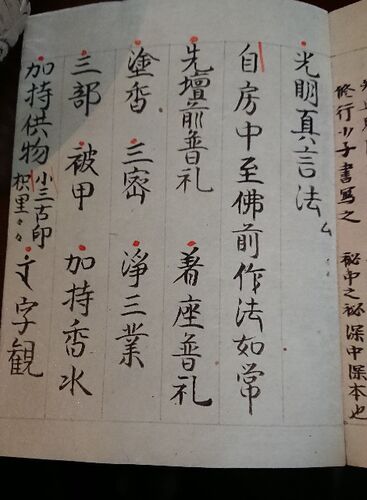 修行少子書写之 秘中之秘深中深本也
光明真言法
自房中至佛前作法如常
先壇前普礼 着座普礼
塗香 三密 浄三業
三部 被甲 加持香水
加持供物 小三古印 枳里々々 文字観